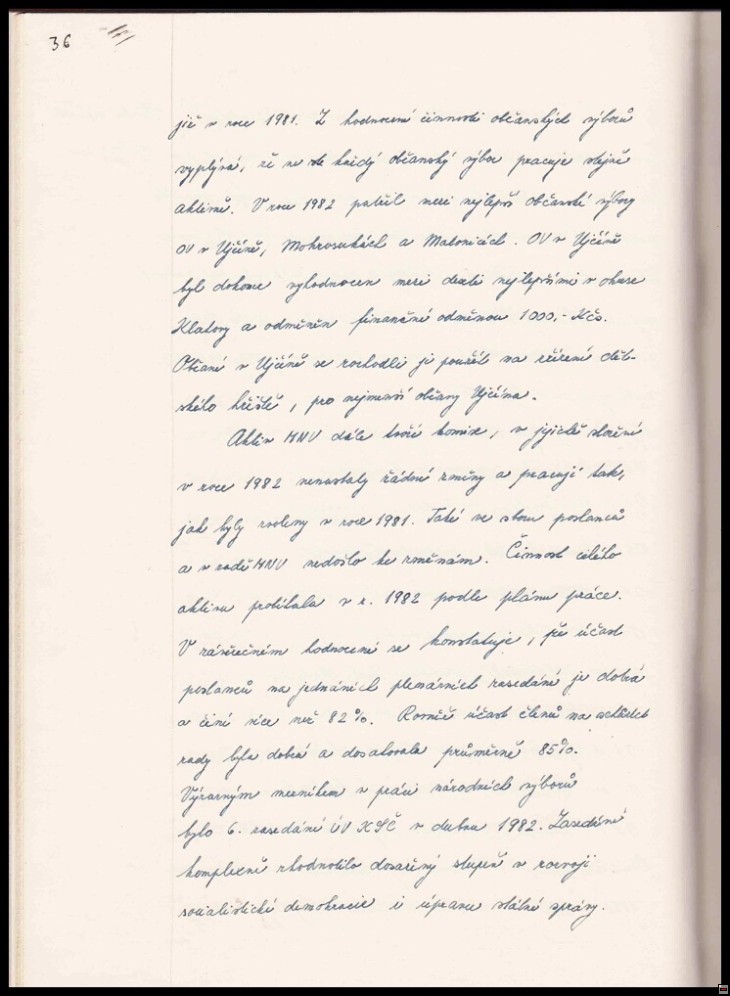 36
již v roce 1981. Z hodnocení činnosti občanských výborů
vyplývá, že ne každý občanský výbor pracuje stejně
aktivně. V roce 1982 patřil mezi nejlepší občanské výbory
OV v Ujčíně, Mokrosukách a Matonicích. OV v Ujčíně
byl dokonce vyhodnocen mezi deseti nejlepšími v okrese
Klatovy a odměněn finanční odměnou 1000,- Kčs.
Občané v Ujčíně se rozhodli ji použít na zřízení dět-
ského hřiště, pro nejmenší občany Ujčína.
Aktiv MNV dále tvoří komise, v jejichž složení
v roce 1982 nenastaly žádné změny a pracují tak,
jak byly zvoleny v roce 1981. Také ve sboru poslanců
a v radě MNV nedošlo ke změnám. Činnost celého
aktivu probíhala v r. 1982 podle plánu práce.
V závěrečném hodnocení se konstatuje, že účast
poslanců na jednáních plenárních zasedání je dobrá
a činí více než 82%. Rovněž účast členů na schůzích
rady byla dobrá a dosahovala průměrně 85%.
Výrazným mezníkem v práci národních výborů
bylo 6. zasedání ÚV KSČ v dubnu 1982. Zasedání
komplexně zhodnotilo dosažený stupeň v rozvoji
socialistické demokracie i úpravu státní správy.